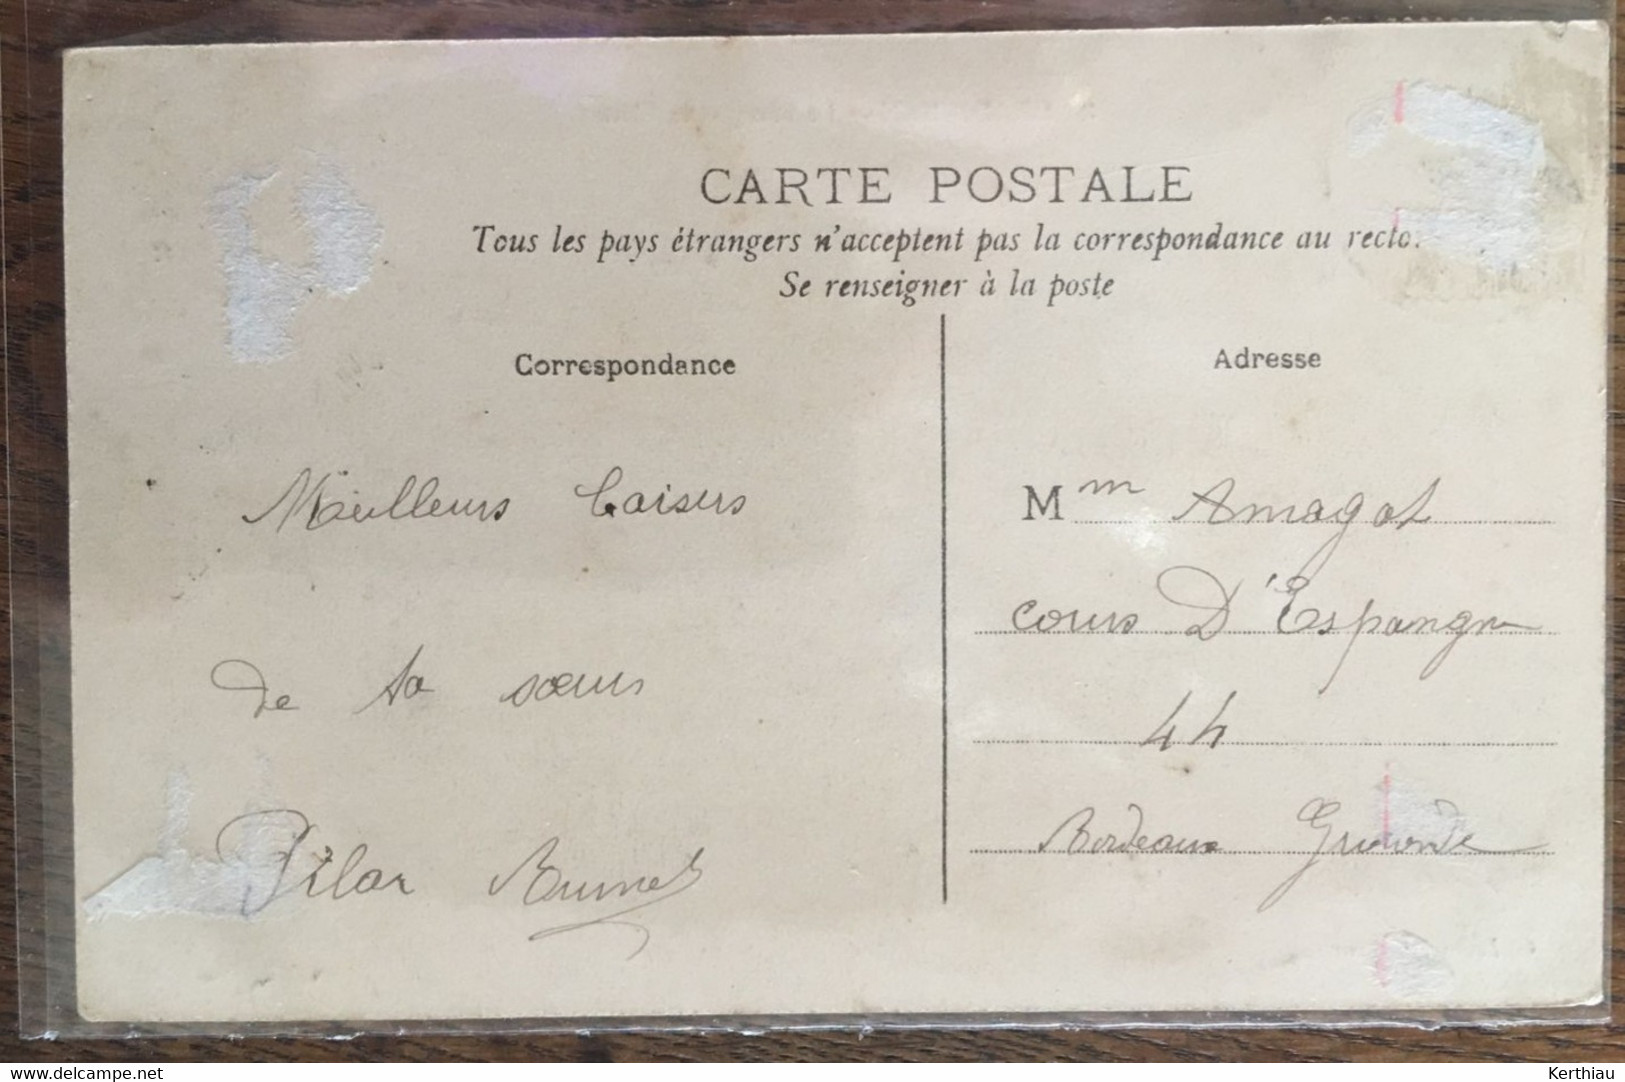 CARTE POSTALE
Tous les pays étrangers n'acceptent pas la correspondance au recto.
Se renseigner à la poste
Correspondance
Adresse
Meilleurs baisers
de ta sœurs
Pilar Brunet
Mm Amagat
cours D'Espangne
44
Bordeaux Gironde
delcampe.net
Kerthiau